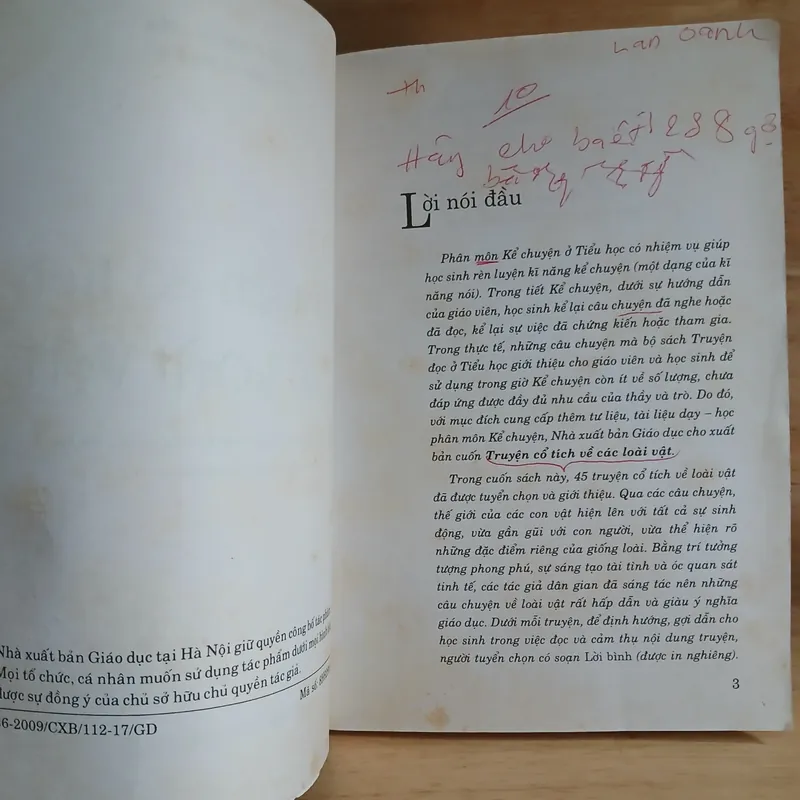 Nhà xuất bản Giáo dục tại Hà Nội giữ quyền công bố tác phẩm
Mọi tổ chức, cá nhân muốn sử dụng tác phẩm dưới mọi hình
được sự đồng ý của chủ sở hữu chủ quyền tác giả.
6-2009/CXB/112-17/GD
Mã số
Lan Oanh
th
10
Hãy cho biết 288
bằng
Lời nói đầu
Phân môn Kể chuyện ở Tiểu học có nhiệm vụ giúp
học sinh rèn luyện kĩ năng kể chuyện (một dạng của kĩ
năng nói). Trong tiết Kể chuyện, dưới sự hướng dẫn
của giáo viên, học sinh kể lại câu chuyện đã nghe hoặc
đã đọc, kể lại sự việc đã chứng kiến hoặc tham gia.
Trong thực tế, những câu chuyện mà bộ sách Truyện
đọc ở Tiểu học giới thiệu cho giáo viên và học sinh để
sử dụng trong giờ Kể chuyện còn ít về số lượng, chưa
đáp ứng được đầy đủ nhu cầu của thầy và trò. Do đó,
với mục đích cung cấp thêm tư liệu, tài liệu dạy – học
phân môn Kể chuyện, Nhà xuất bản Giáo dục cho xuất
bản cuốn Truyện cổ tích về các loài vật.
Trong cuốn sách này, 45 truyện cổ tích về loài vật
đã được tuyển chọn và giới thiệu. Qua các câu chuyện,
thế giới của các con vật hiện lên với tất cả sự sinh
động, vừa gần gũi với con người, vừa thể hiện rõ
những đặc điểm riêng của giống loài. Bằng trí tưởng
tượng phong phú, sự sáng tạo tài tình và óc quan sát
tinh tế, các tác giả dân gian đã sáng tác nên những
câu chuyện về loài vật rất hấp dẫn và giàu ý nghĩa
giáo dục. Dưới mỗi truyện, để định hướng, gợi dẫn cho
học sinh trong việc đọc và cảm thụ nội dung truyện,
người tuyển chọn có soạn Lời bình (được in nghiêng).
3